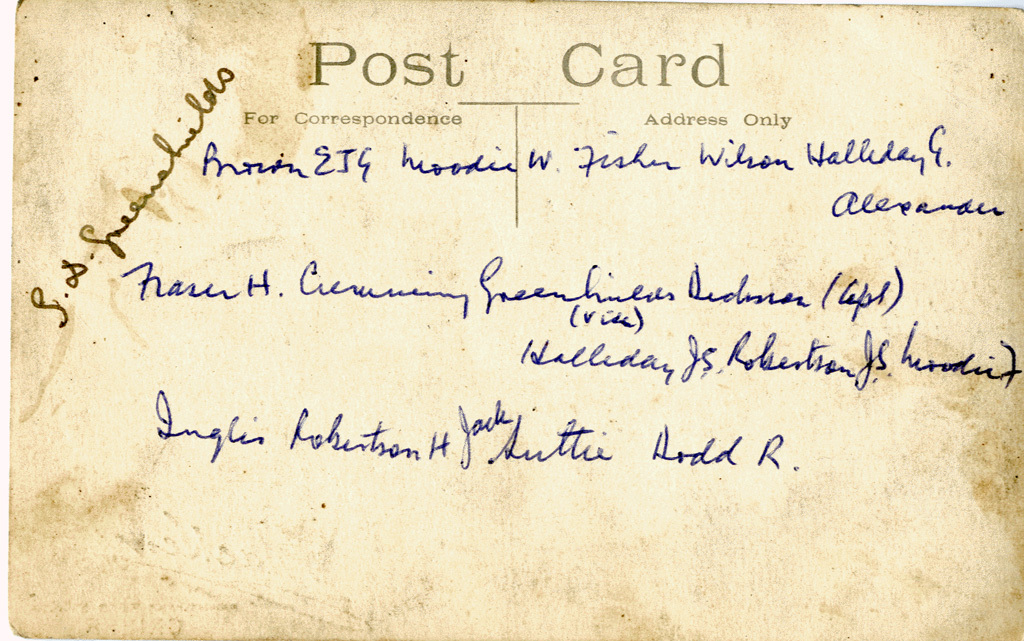 Post Card
For Correspondence Address Only
J. D. Greenshields
Brown EJG Moodie W. Fisher Wilson Halliday G.
Alexander
Fraser H. Cumming Greenshields Dickson (Capt)
(Vice)
Halliday J.S. Robertson J.S. Moodie J
Inglis Robertson H Jack Suttie Dodd R.